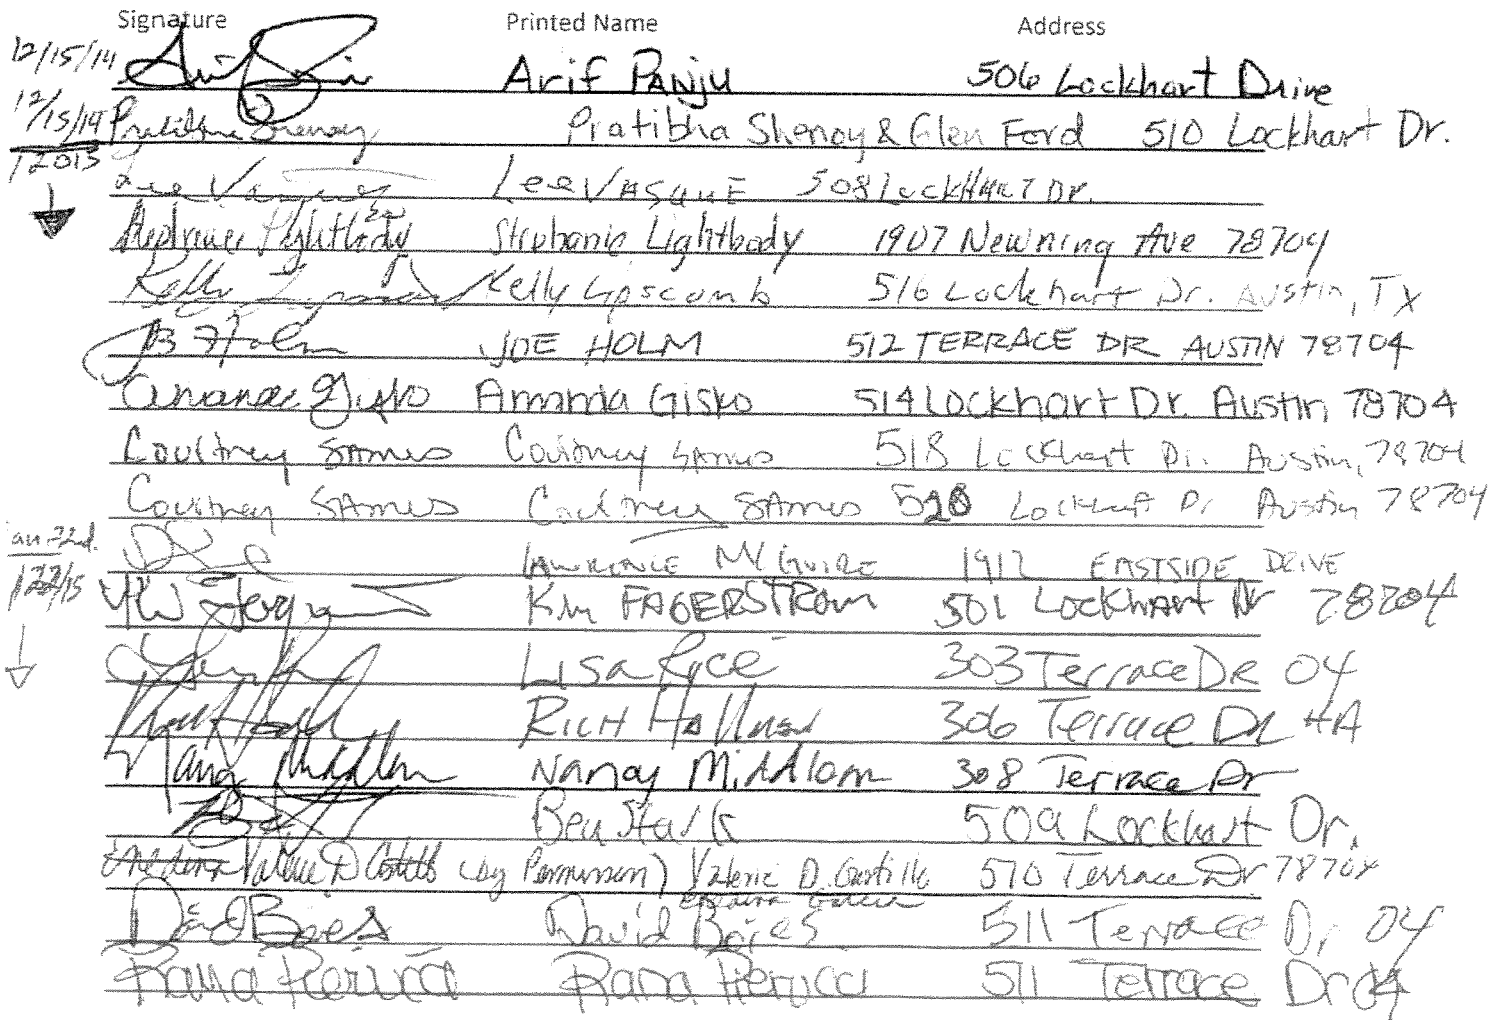 Signature Printed Name Address
12/15/14 Arif Panju 506 Lockhart Drive
12/15/14 Pratibha Shenoy Pratibha Shenoy & Glen Ford 510 Lockhart Dr.
Lee Lee VASQUE 508 LockHART DR.
/2015
Stephanie Lightbody Stephanie Lightbody 1907 Newning Ave 78704
Kelly Kelly Lipscomb 516 Lockhart Dr. Austin, TX
JB Holm JOE HOLM 512 TERRACE DR AUSTIN 78704
Amanda Gisko Amanda Gisko 514 Lockhart Dr. Austin 78704
Courtney SAMUS Courtney SAMUS 518 Lockhart Dr. Austin, 78704
Courtney SAMUS Courtney SAMUS 520 Lockhart Dr Austin 78704
Jan 22d. LAWRENCE McGUIRE 1912 EASTSIDE DRIVE
1/22/15 Kim FAGERSTROM 501 Lockhart Dr 78704
Lisa Ryce 303 Terrace DR 04
RICH 306 Terrace DR #A
Nancy Nancy Middlom 308 Terrace Dr
Ben Stark 509 Lockhart Dr.
Valerie D Castillo (by Permission) Valerie D. Castillo 510 Terrace Dr 78704
David Boies David Boies 511 Terrace Dr 04
Rana Pierucci Rana Pierucci 511 Terrace Dr 04